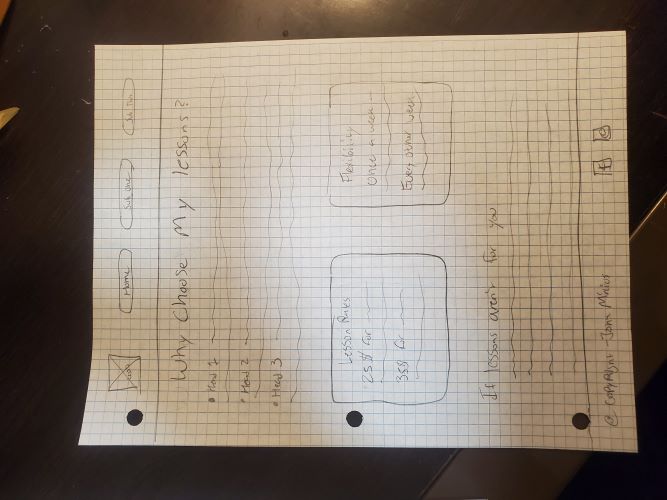 Home Sub One Sub Two
Why Choose My lessons?
Head 1
Head 2
Head 3
Lesson Rates
25$ for
35$ for
Flexibility
Once a week
Every other week
If lessons aren't for you
© Copyright - 
f